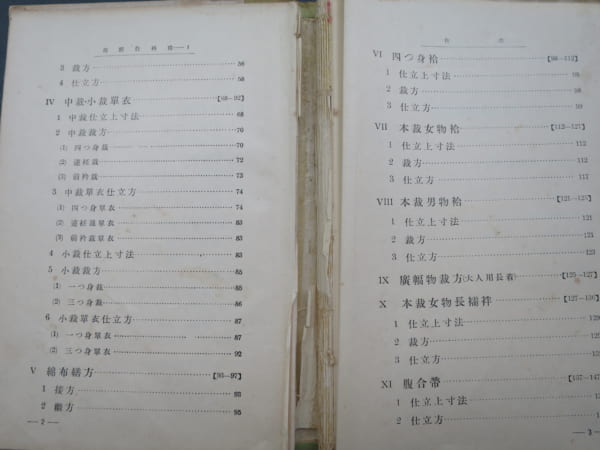 3 裁方 58
4 仕立方 58
IV 中裁小裁單衣 【68—92】
1 中裁仕立上寸法 68
2 中裁裁方 70
(1) 四つ身裁 70
(2) 逹衽裁 72
(3) 前衿裁 73
3 中裁單衣仕立方 74
(1) 四つ身單衣 74
(2) 逹衽裁單衣 83
(3) 前衿裁單衣 83
4 小裁仕立上寸法 83
5 小裁裁方 85
(1) 一つ身裁 85
(2) 三つ身裁 86
6 小裁單衣仕立方 87
(1) 一つ身單衣 87
(2) 三つ身單衣 92
V 綿布繕方 【93—97】
1 接方 93
2 繼方 95
— 2 —
VI 四つ身袷 【98—112】
1 仕立上寸法 98
2 裁方 98
3 仕立方 99
VII 本裁女物袷 【112—127】
1 仕立上寸法 112
2 裁方 112
3 仕立方 117
VIII 本裁男物袷 【121—125】
1 仕立上寸法 121
2 裁方 121
3 仕立方 123
IX 廣幅物裁方(大人用長着) 【125—127】
X 本裁女物長襦袢
1 仕立上寸法
2 裁方
3 仕立方
XI 腹合帶
1 仕立上寸法
2 仕立方
— 3 —